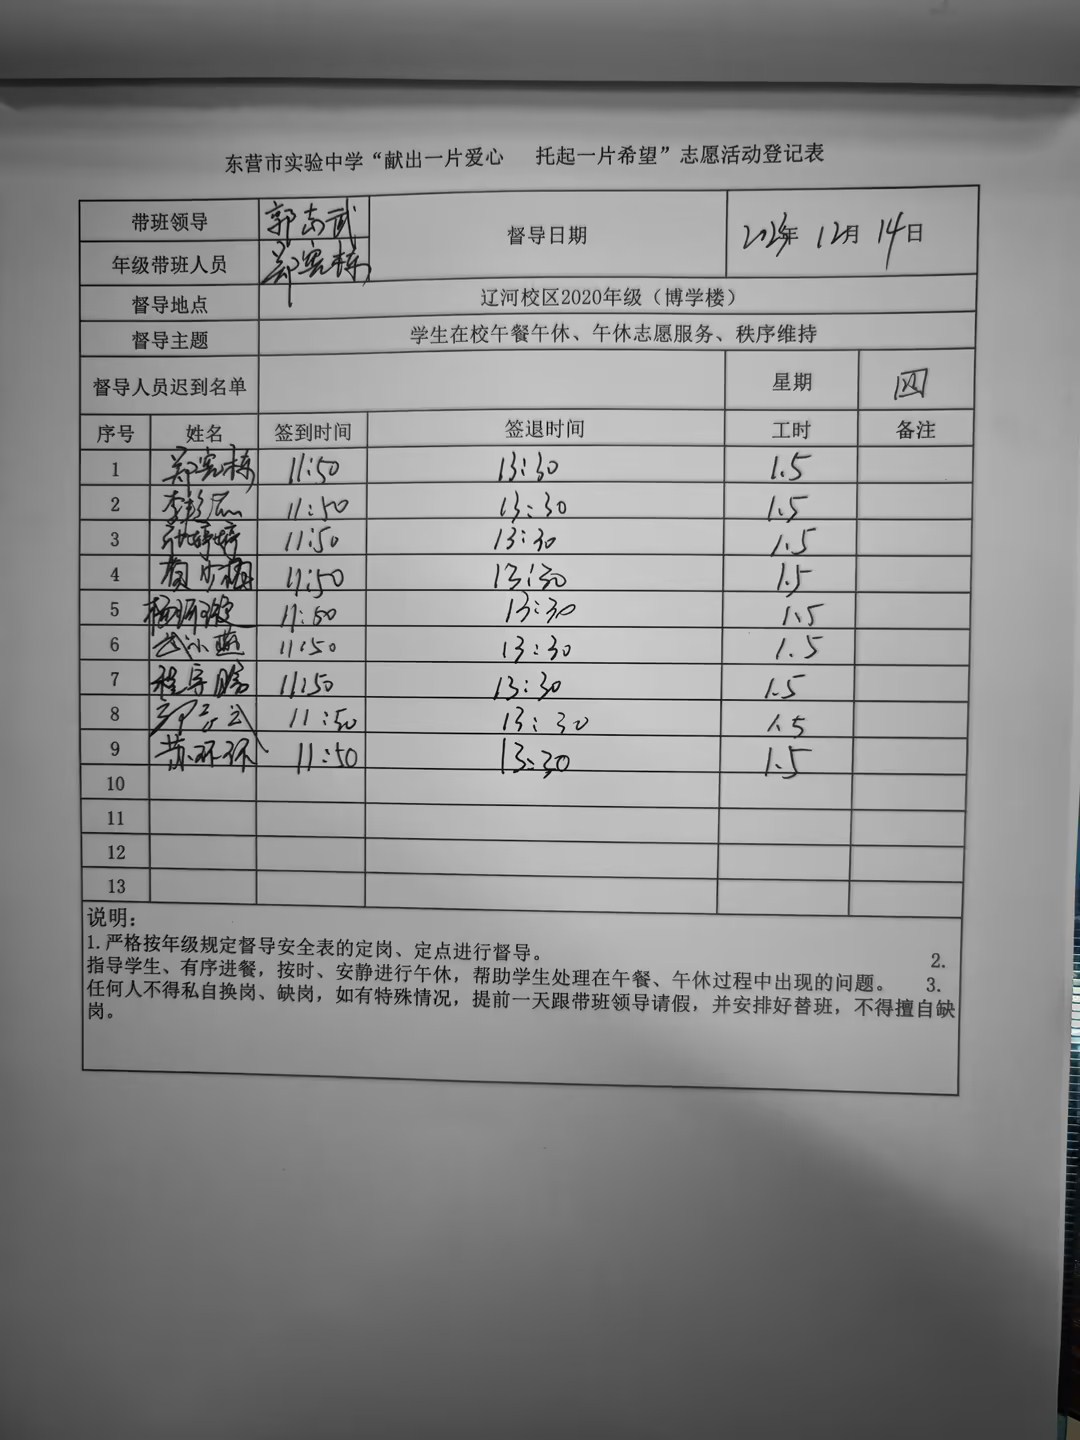 东营市实验中学“献出一片爱心 托起一片希望”志愿活动登记表
带班领导 郭 武 督导日期 2023年 12月 14日
年级带班人员 郑宪栋
督导地点 辽河校区2020年级（博学楼）
督导主题 学生在校午餐午休、午休志愿服务、秩序维持
督导人员迟到名单 星期 四
序号 姓名 签到时间 签退时间 工时 备注
1 郑宪栋 11:50 13:30 1.5
2 李 11:50 13:30 1.5
3 11:50 13:30 1.5
4 11:50 13:30 1.5
5 杨 11:50 13:30 1.5
6 武小燕 11:50 13:30 1.5
7 程宇 11:50 13:30 1.5
8 11:50 13:30 1.5
9 苏环环 11:50 13:30 1.5
10
11
12
13
说明：
1.严格按年级规定督导安全表的定岗、定点进行督导。 2.
指导学生、有序进餐，按时、安静进行午休，帮助学生处理在午餐、午休过程中出现的问题。 3.
任何人不得私自换岗、缺岗，如有特殊情况，提前一天跟带班领导请假，并安排好替班，不得擅自缺
岗。